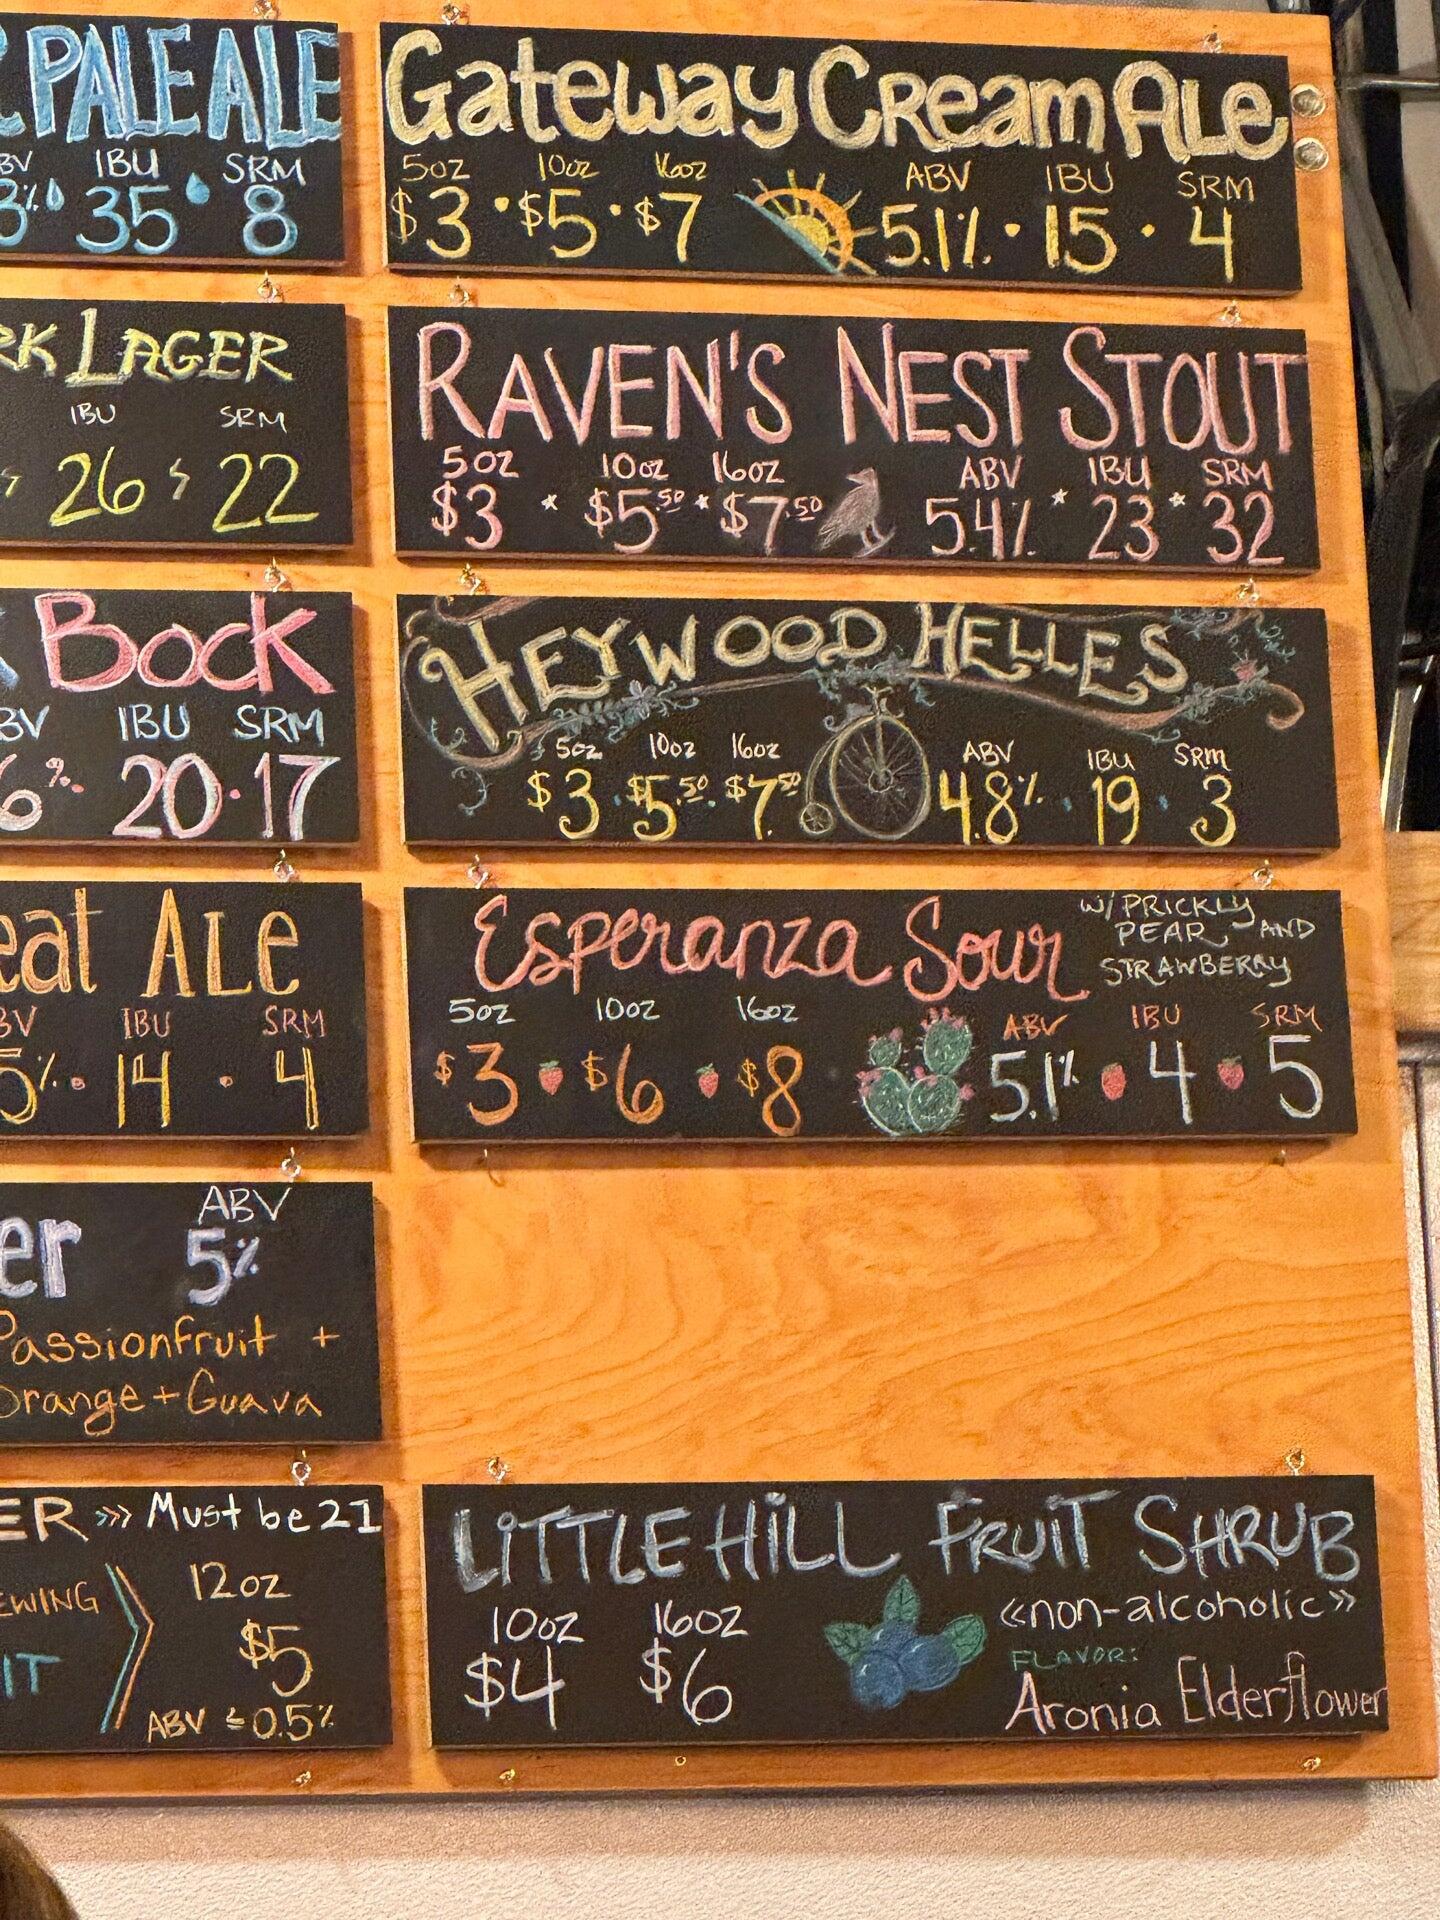 PALE ALE
IBU SRM
35 8
LAGER
IBU SRM
26 22
Bock
IBU SRM
20 · 17
ALE
IBU SRM
14 · 4
ABV
5%
Passionfruit +
Orange + Guava
>>> Must be 21
12oz
$5
ABV ≤ 0.5%
Gateway Cream Ale
5oz 10oz 16oz ABV IBU SRM
$3 · $5 · $7 5.1% · 15 · 4
RAVEN'S NEST STOUT
5oz 10oz 16oz ABV IBU SRM
$3 * $5.50 * $7.50 5.4% * 23 * 32
HEYWOOD HELLES
5oz 10oz 16oz ABV IBU SRM
$3 · $5.50 · $7.50 4.8% · 19 · 3
Esperanza Sour w/ PRICKLY
PEAR AND
STRAWBERRY
5oz 10oz 16oz ABV IBU SRM
$3 $6 $8 5.1% 4 5
LiTTLE HiLL FRUiT SHRUB
10oz 16oz «non-alcoholic»
$4 $6 FLAVOR:
Aronia Elderflower